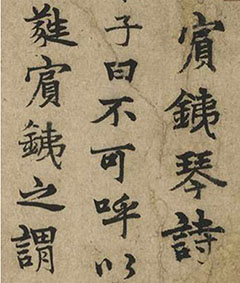 賔銕琴詩
子曰不可呼以
蕤賔銕之謂